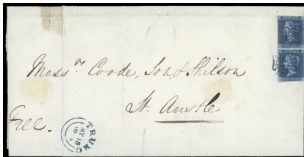 Messrs. Coode, Son & Shilson
St. Austle
Free.
TRURO